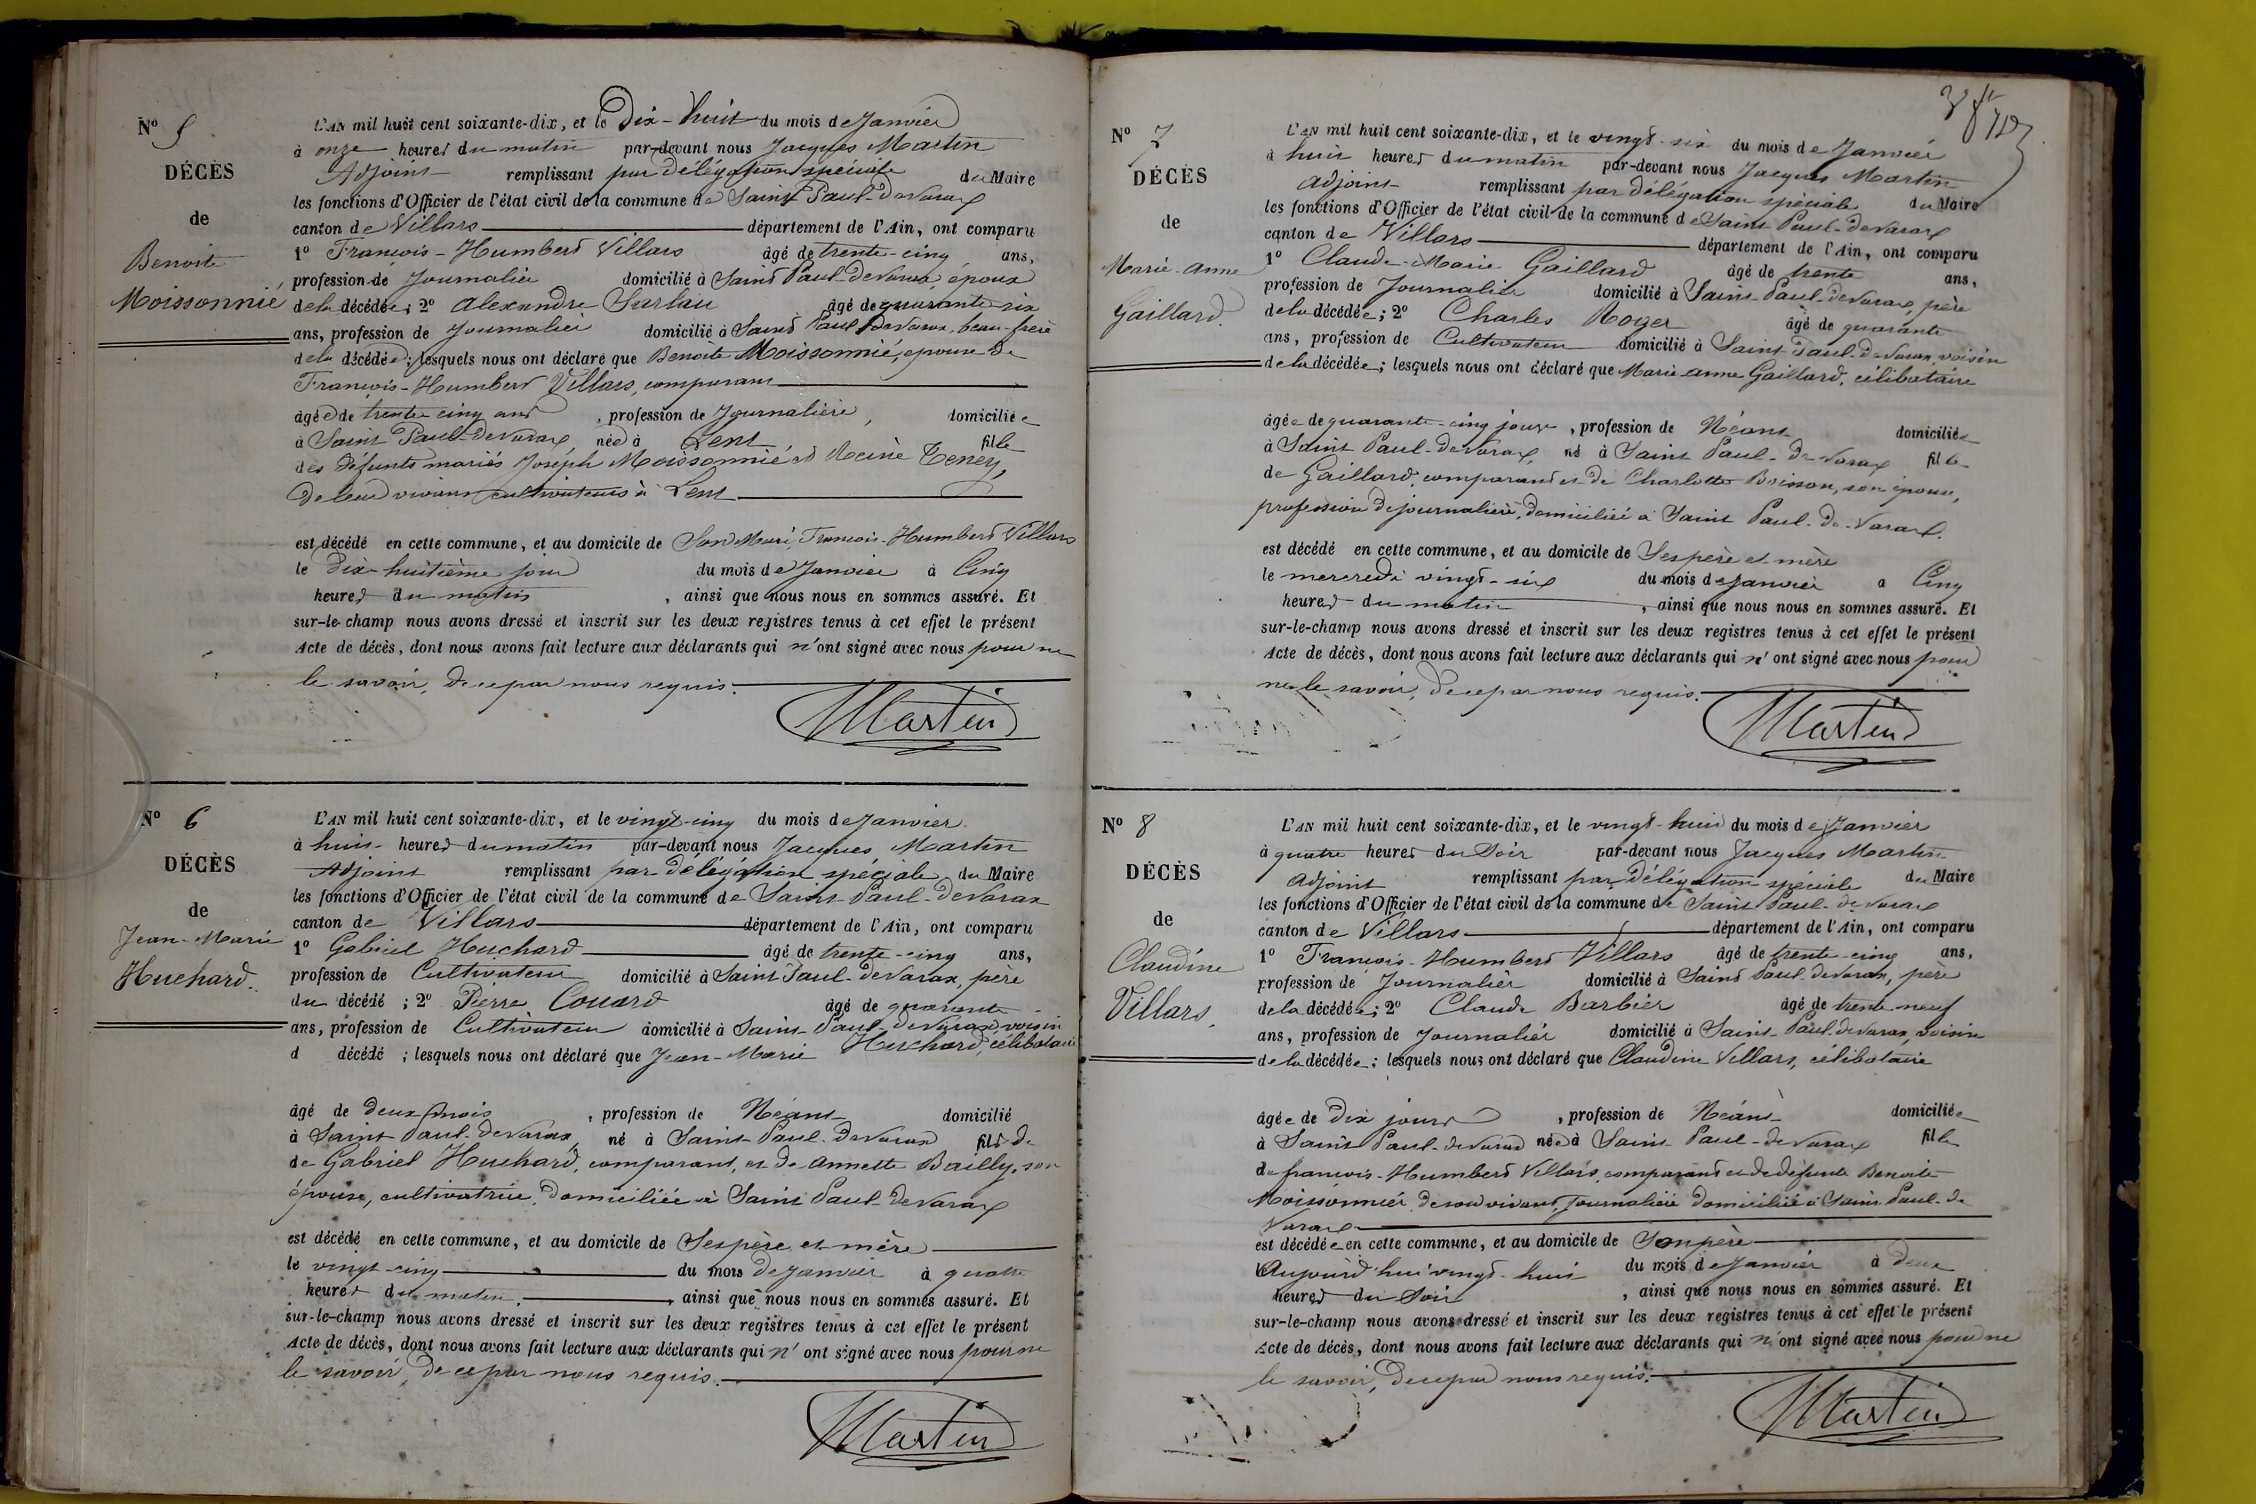 Nº 5
DÉCÈS
de
Benoite
Moissonnié
L'AN mil huit cent soixante-dix, et le Dix-huit du mois de Janvier
à onze heures du matin par-devant nous Jacques Martin
Adjoint remplissant par Délégation spéciale du Maire
les fonctions d'Officier de l'état civil de la commune de Saint Paul-de Varax
canton de Villars département de l'Ain, ont comparu
1º François-Humbert Villars âgé de trente-cinq ans,
profession de Journalier domicilié à Saint Paul-de Varax, époux
de la décédée; 2º Alexandre âgé de quarante six
ans, profession de Journalier domicilié à Saint Paul de Varax, beau-frère
de la décédée; lesquels nous ont déclaré que Benoite Moissonnié, épouse de
François-Humbert Villars, comparant
âgée de trente cinq ans, profession de Journalière, domiciliée
à Saint Paul-de Varax, née à Lent fille
des défunts mariés Joséph Moissonnié et Reine Teney,
de leur vivant cultivateurs à Lent
est décédé en cette commune, et au domicile de Son Mari, François-Humbert Villars
le Dix-huitième jour du mois de Janvier à Cinq
heures du matin, ainsi que nous nous en sommes assuré. Et
sur-le-champ nous avons dressé et inscrit sur les deux registres tenus à cet effet le présent
Acte de décès, dont nous avons fait lecture aux déclarants qui n'ont signé avec nous pour ne
le savoir, de ce par nous requis.
Martin
Nº 6
DÉCÈS
de
Jean-Marie
Huchard.
L'AN mil huit cent soixante-dix, et le vingt-cinq du mois de Janvier
à huit heures du matin par-devant nous Jacques Martin
Adjoint remplissant par Délégation spéciale du Maire
les fonctions d'Officier de l'état civil de la commune de Saint-Paul-de Varax
canton de Villars département de l'Ain, ont comparu
1º Gabriel Huchard âgé de trente-cinq ans,
profession de Cultivateur domicilié à Saint Paul-de Varax, père
du décédé; 2º Pierre Couard âgé de quarante
ans, profession de Cultivateur domicilié à Saint-Paul-de Varax, voisin
d décédé; lesquels nous ont déclaré que Jean-Marie Huchard, célibataire
âgé de deux mois, profession de Néant domicilié
à Saint Paul-de Varax, né à Saint-Paul-de Varax fils de
de Gabriel Huchard, comparant, et de Annette Bailly, son
épouse, cultivatrice, domiciliée à Saint Paul-de Varax
est décédé en cette commune, et au domicile de Ses père et mère
le vingt-cinq du mois de Janvier à quatre
heures du matin, ainsi que nous nous en sommes assuré. Et
sur-le-champ nous avons dressé et inscrit sur les deux registres tenus à cet effet le présent
Acte de décès, dont nous avons fait lecture aux déclarants qui n'ont signé avec nous pour ne
le savoir, de ce par nous requis.
Martin
Nº 7
DÉCÈS
de
Marie-Anne
Gaillard.
L'AN mil huit cent soixante-dix, et le vingt-six du mois de Janvier
à huit heures du matin par-devant nous Jacques Martin
Adjoint remplissant par Délégation spéciale du Maire
les fonctions d'Officier de l'état civil de la commune de Saint Paul-de Varax
canton de Villars département de l'Ain, ont comparu
1º Claude-Marie Gaillard âgé de trente ans,
profession de Journalier domicilié à Saint-Paul-de Varax, père
de la décédée; 2º Charles Royer âgé de quarante
ans, profession de Cultivateur domicilié à Saint-Paul-de Varax voisin
de la décédée; lesquels nous ont déclaré que Marie-anne Gaillard, célibataire
âgée de quarante-cinq jours, profession de Néant domiciliée
à Saint Paul-de Varax, né à Saint Paul-de Varax fille
de Gaillard, comparant et de Charlotte Boisson, son épouse,
profession de journalière, domiciliée à Saint Paul-de-Varax.
est décédé en cette commune, et au domicile de Ses père et mère
le mercredi vingt-six du mois de Janvier à Cinq
heures du matin, ainsi que nous nous en sommes assuré. Et
sur-le-champ nous avons dressé et inscrit sur les deux registres tenus à cet effet le présent
Acte de décès, dont nous avons fait lecture aux déclarants qui n'ont signé avec nous pour
ne le savoir, de ce par nous requis.
Martin
Nº 8
DÉCÈS
de
Claudine
Villars.
L'AN mil huit cent soixante-dix, et le vingt-huit du mois de Janvier
à quatre heures du Soir par-devant nous Jacques Martin
Adjoint remplissant par Délégation spéciale du Maire
les fonctions d'Officier de l'état civil de la commune de Saint Paul-de Varax
canton de Villars département de l'Ain, ont comparu
1º François-Humbert Villars âgé de trente-cinq ans,
profession de Journalier domicilié à Saint Paul-de Varax, père
de la décédée; 2º Claude Barbier âgé de trente-neuf
ans, profession de Journalier domicilié à Saint-Paul-de Varax, voisin
de la décédée; lesquels nous ont déclaré que Claudine Villars, célibataire
âgée de Dix jours, profession de Néant domiciliée
à Saint Paul-de Varax née à Saint Paul-de Varax fille
de françois-Humbert Villars, comparant et de défunte Benoite
Moissonnier, de son vivant, Journalière domiciliée à Saint Paul-de
Varax
est décédée en cette commune, et au domicile de Son père
Aujourd'hui vingt-huit du mois de Janvier à deux
heures du Soir, ainsi que nous nous en sommes assuré. Et
sur-le-champ nous avons dressé et inscrit sur les deux registres tenus à cet effet le présent
Acte de décès, dont nous avons fait lecture aux déclarants qui n'ont signé avec nous pour ne
le savoir, de ce par nous requis.
Martin